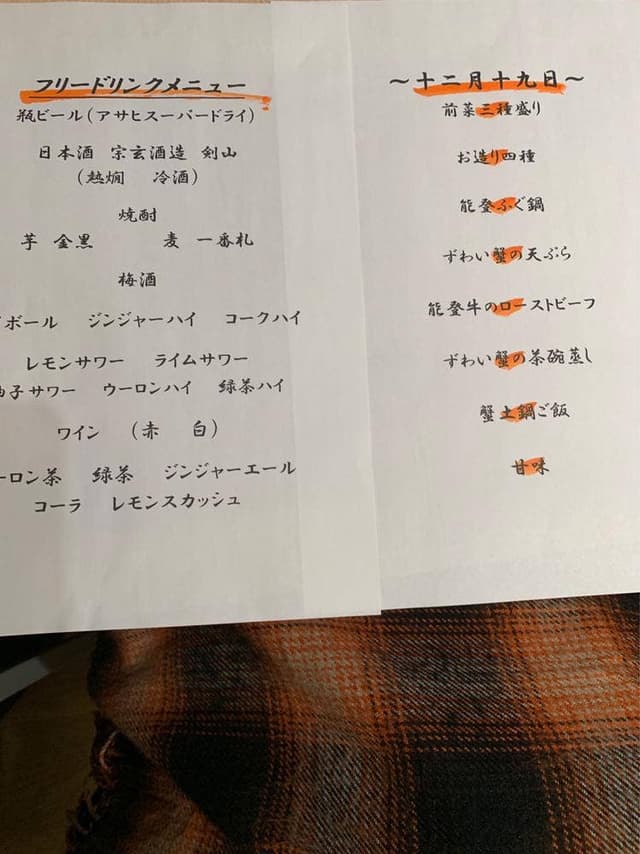 フリードリンクメニュー
瓶ビール(アサヒスーパードライ)
日本酒 宗玄酒造 剣山
(熱燗 冷酒)
焼酎
芋 金黒 麦 一番札
梅酒
ボール ジンジャーハイ コークハイ
レモンサワー ライムサワー
子サワー ウーロンハイ 緑茶ハイ
ワイン (赤 白)
ーロン茶 緑茶 ジンジャーエール
コーラ レモンスカッシュ
~十二月十九日~
前菜三種盛り
お造り四種
能登ふぐ鍋
ずわい蟹の天ぷら
能登牛のローストビーフ
ずわい蟹の茶碗蒸し
蟹土鍋ご飯
甘味